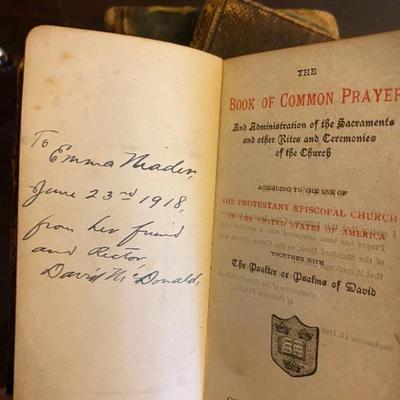 To
Emma Meader,
June 23rd 1918,
from her friend
and Rector,
David McDonald,
THE
BOOK OF COMMON PRAYER
And Administration of the Sacraments
and other Rites and Ceremonies
of the Church
ACCORDING TO THE USE OF
THE PROTESTANT EPISCOPAL CHURCH
IN THE UNITED STATES OF AMERICA
TOGETHER WITH
The Psalter or Psalms of David